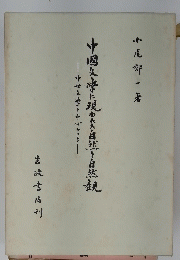 小尾郊一著
中國文學に現われた自然と自然観
—中世文学を中心として—
岩波書店刊